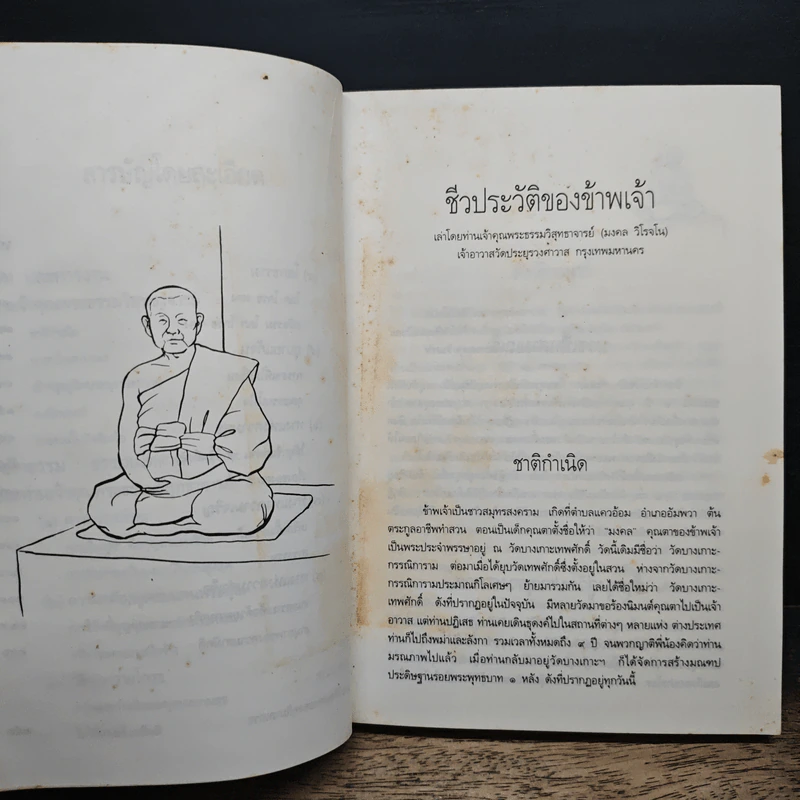 ชีวประวัติของข้าพเจ้า
เล่าโดยท่านเจ้าคุณพระธรรมวิสุทธาจารย์ (มงคล วิโรจโน)
เจ้าอาวาสวัดประยุรวงศาวาส กรุงเทพมหานคร
ชาติกำเนิด
ข้าพเจ้าเป็นชาวสมุทรสงคราม เกิดที่ตำบลแควอ้อม อำเภออัมพวา ต้น
ตระกูลอาชีพทำสวน ตอนเป็นเด็กคุณตาตั้งชื่อให้ว่า "มงคล" คุณตาของข้าพเจ้า
เป็นพระประจำพรรษาอยู่ ณ วัดบางเกาะเทพศักดิ์ วัดนี้เดิมมีชื่อว่า วัดบางเกาะ-
กรรณิการาม ต่อมาเมื่อได้ยุบวัดเทพศักดิ์ซึ่งตั้งอยู่ในสวน ห่างจากวัดบางเกาะ-
กรรณิการามประมาณกิโลเศษๆ ย้ายมารวมกัน เลยได้ชื่อใหม่ว่า วัดบางเกาะ-
เทพศักดิ์ ดังที่ปรากฏอยู่ในปัจจุบัน มีหลายวัดมาขอร้องนิมนต์คุณตาไปเป็นเจ้า
อาวาส แต่ท่านปฏิเสธ ท่านเคยเดินธุดงค์ไปในสถานที่ต่างๆ หลายแห่ง ต่างประเทศ
ท่านก็ไปถึงพม่าและลังกา รวมเวลาทั้งหมดถึง ๙ ปี จนพวกญาติพี่น้องคิดว่าท่าน
มรณภาพไปแล้ว เมื่อท่านกลับมาอยู่วัดบางเกาะฯ ก็ได้จัดการสร้างมณฑป
ประดิษฐานรอยพระพุทธบาท ๑ หลัง ดังที่ปรากฏอยู่ทุกวันนี้